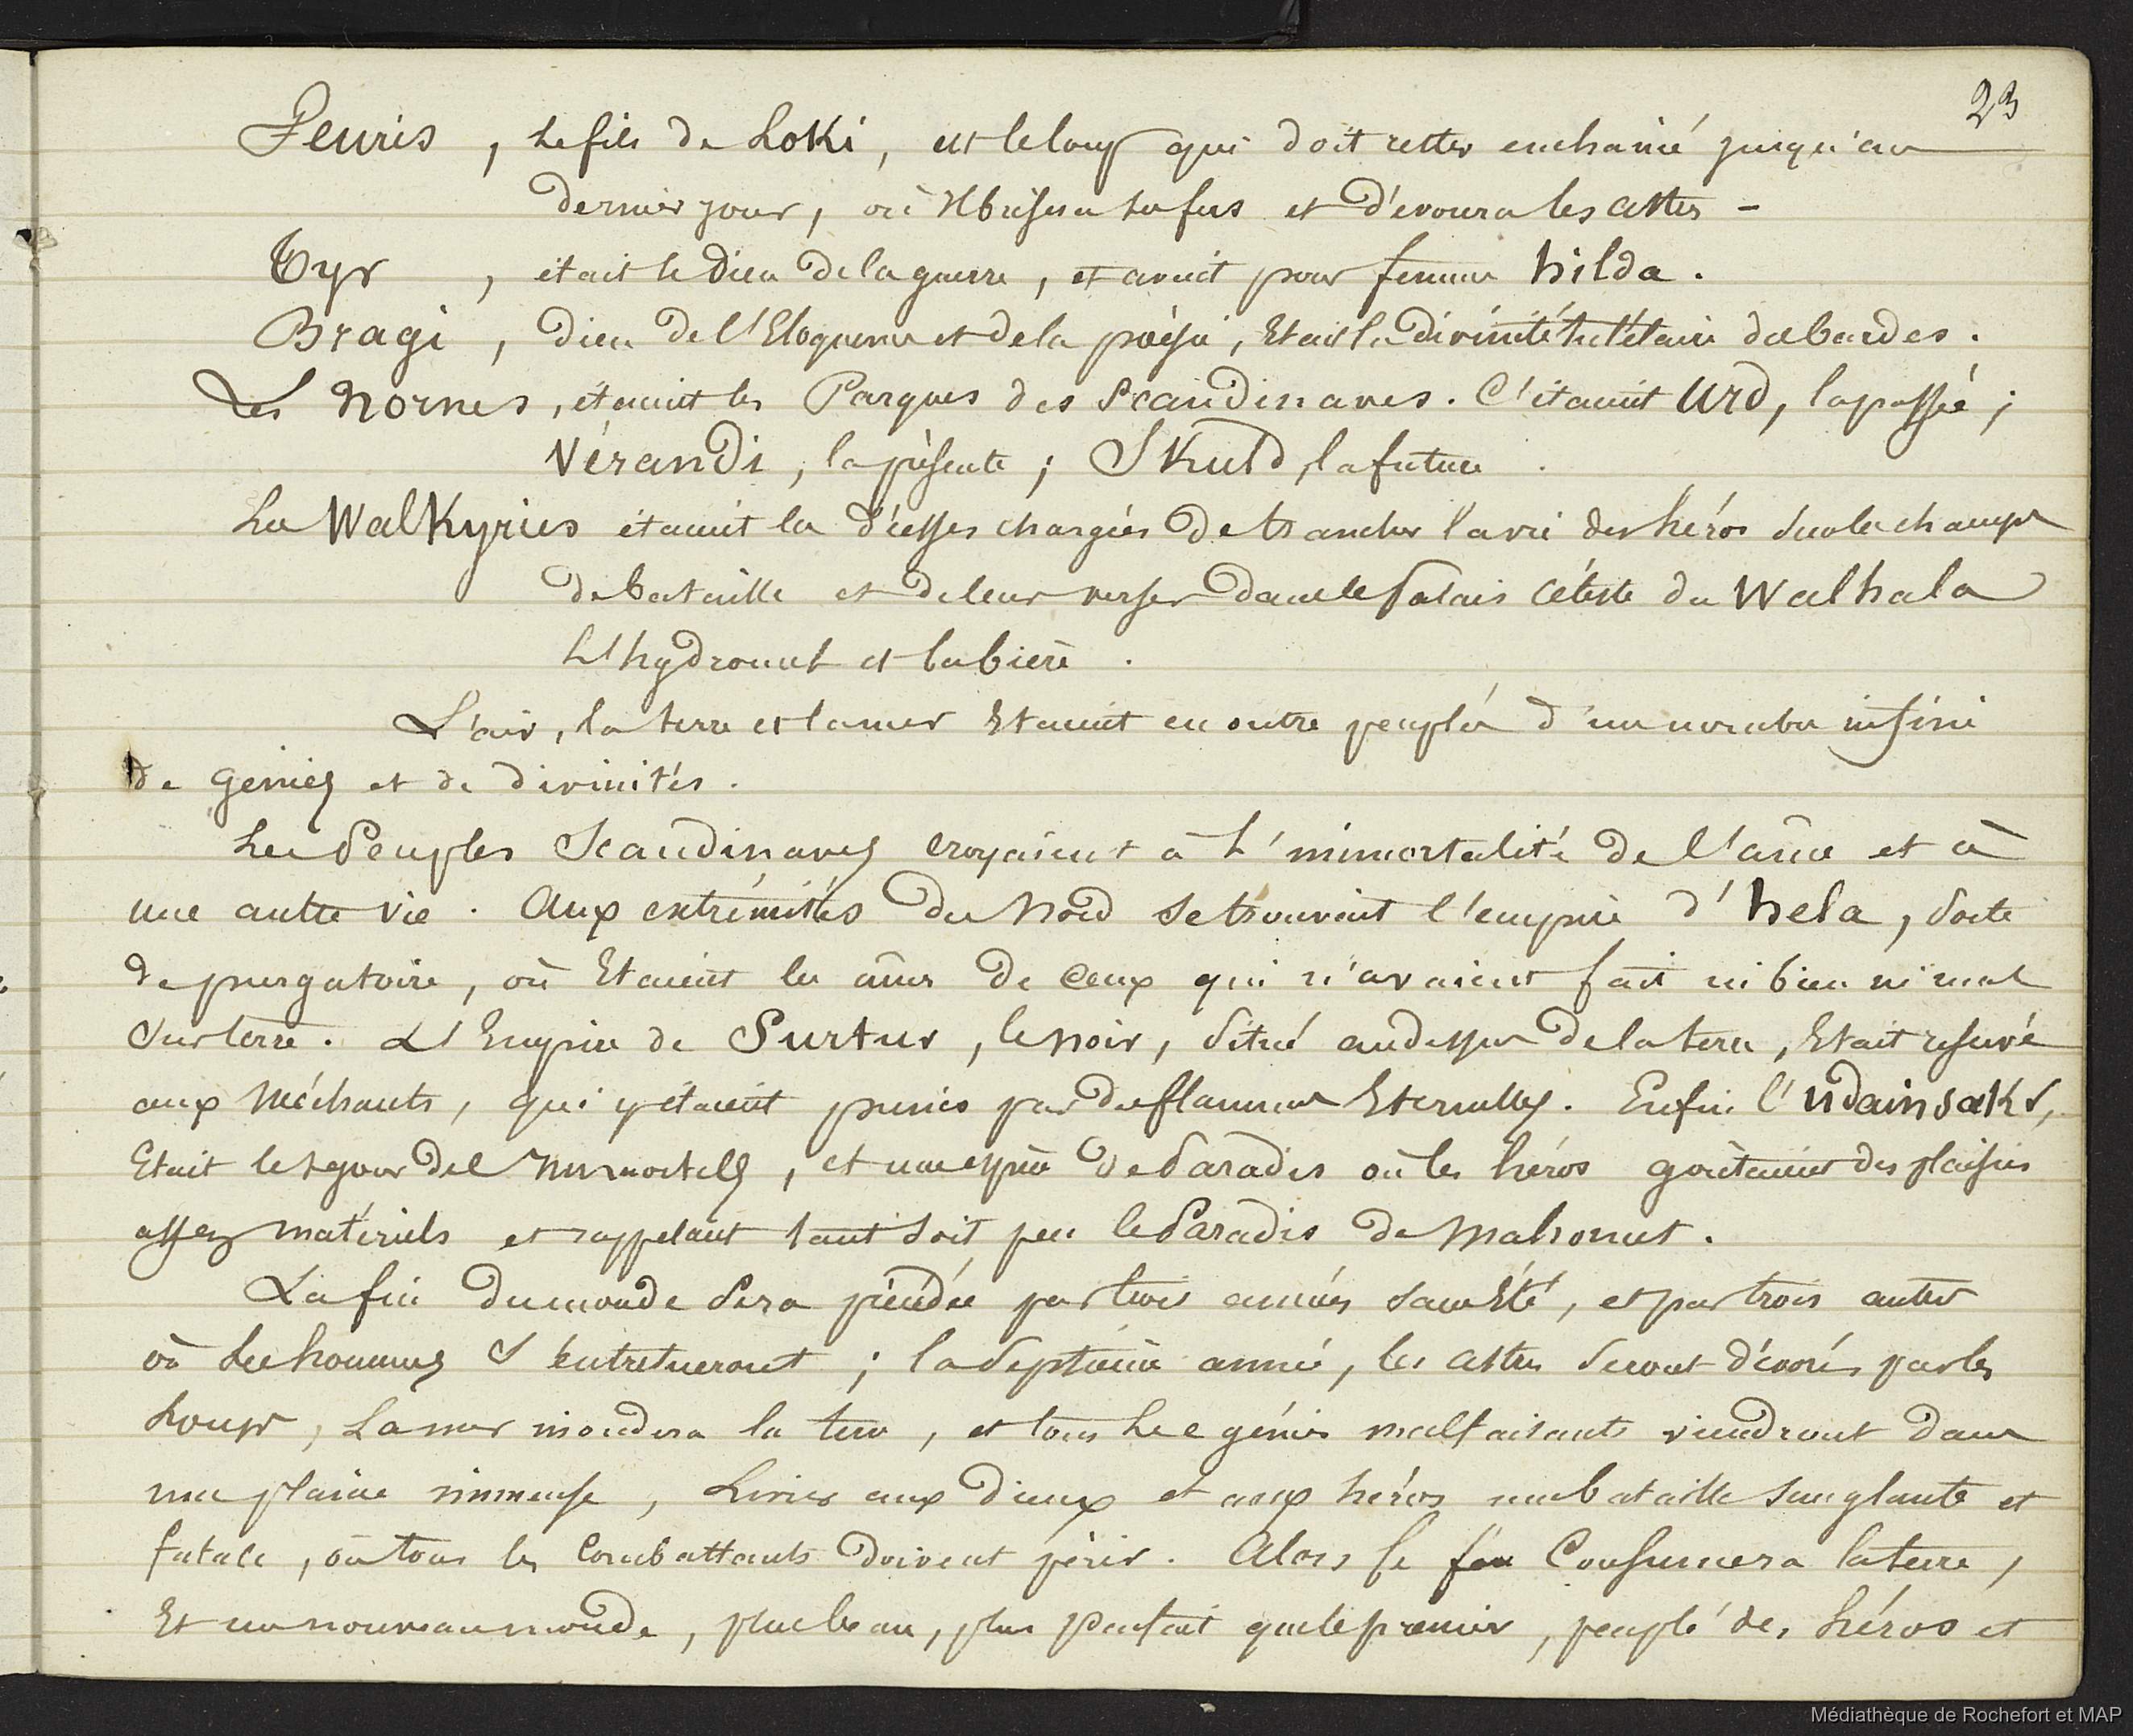 23
Fenris, le fils de Loki, est le loup qui doit rester enchainé jusqu'au
dernier jour, où il brisera ses fers et dévorera les astres -
Tyr, était le dieu de la guerre, et avait pour femme hilda.
Bragi, dieu de l'Eloquence et de la poésie, Etait la divinité tutélaire des bardes.
Les Nornes, étaient les Parques des Scandinaves. C'étaient Urd, la passée ;
Vérandi, la présente ; Skuld, la future.
Les Walkyries étaient les déesses chargées de trancher la vie des héros sur les champs
de bataille et de leur verser dans le Palais céleste du Walhala
L'hydromel et la bière.
L'air, la terre et la mer Etaient en outre peuplés d'un nombre infini
de génies et de divinités.
Les Peuples Scandinaves croyaient à L'immortalité de l'âme et à
une autre vie. Aux extrémités du Nord se trouvait l'empire d'hela, sorte
de purgatoire, où Etaient les âmes de ceux qui n'avaient fait ni bien ni mal
sur terre. L'Empire de Surtur, le noir, situé au dessus de la terre, Etait réservé
aux Méchants, qui y étaient punis par des flammes Eternelles. Enfin l'Udainsakr,
Etait le séjour des Immortels, et une espèce de Paradis où les héros goûtaient des plaisirs
assez matériels et rappelant tant soit peu le Paradis de Mahomet.
La fin du monde sera précédée par trois années sans Eté, et par trois autres
où Les hommes s'entretueront ; la septième année, les astres seront dévorés par les
Loups, La mer inondera la terre, et tous Les génies malfaisants viendront dans
une plaine immense, Livrer aux dieux et aux héros une bataille sanglante et
fatale, où tous les Combattants doivent périr. Alors le feu Consumera la terre,
Et un nouveau monde, plus beau, plus parfait que le premier, peuplé de, héros et
Médiathèque de Rochefort et MAP